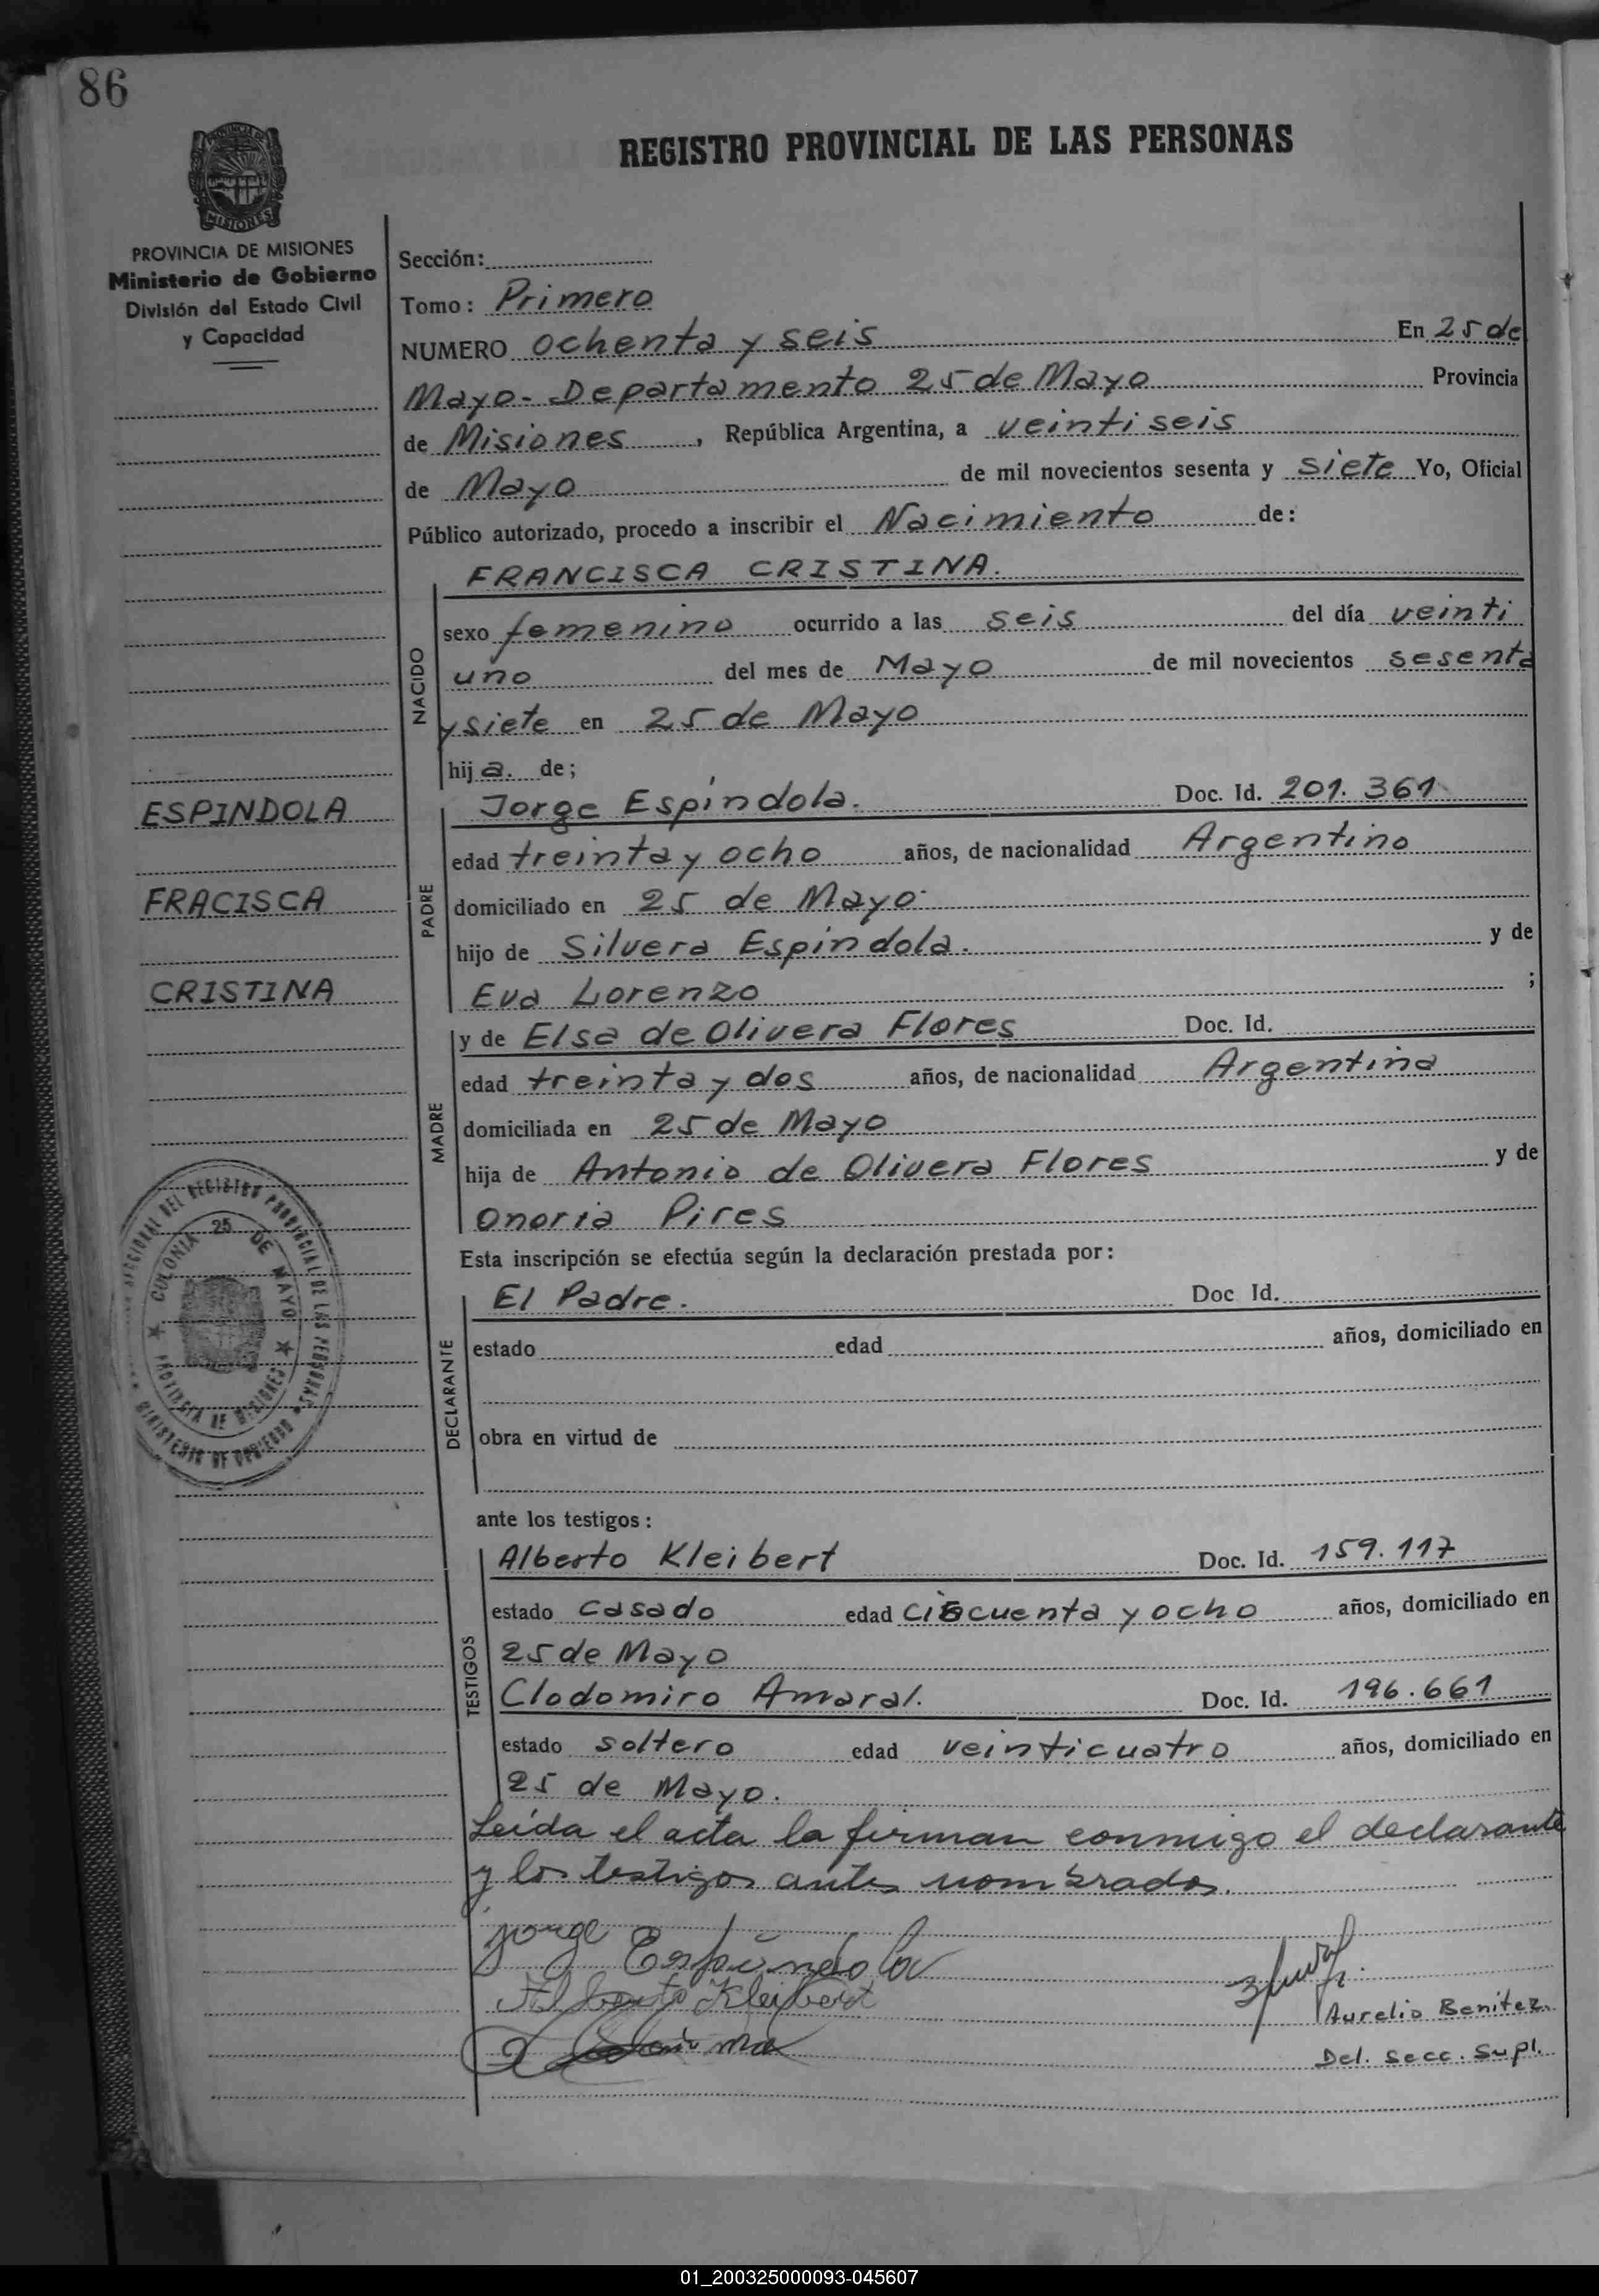 86
REGISTRO PROVINCIAL DE LAS PERSONAS
PROVINCIA DE MISIONES
Ministerio de Gobierno
División del Estado Civil
y Capacidad
Sección:
Tomo: Primero
NUMERO ochenta y seis En 25 de
Mayo - Departamento 25 de Mayo Provincia
de Misiones, República Argentina, a veintiseis
de Mayo de mil novecientos sesenta y siete Yo, Oficial
Público autorizado, procedo a inscribir el Nacimiento de:
NACIDO
FRANCISCA CRISTINA.
sexo femenino ocurrido a las seis del día veinti
uno del mes de Mayo de mil novecientos sesenta
y siete en 25 de Mayo
hija. de;
ESPINDOLA
FRACISCA
CRISTINA
PADRE
Jorge Espíndola. Doc. Id. 201.361
edad treinta y ocho años, de nacionalidad Argentino
domiciliado en 25 de Mayo
hijo de Silvera Espindola. y de
Eva Lorenzo ;
MADRE
y de Elsa de Olivera Flores Doc. Id.
edad treinta y dos años, de nacionalidad Argentina
domiciliada en 25 de Mayo
hija de Antonio de Olivera Flores y de
Onoria Pires
SECCIONAL DEL REGISTRO PROVINCIAL DE LAS PERSONAS
COLONIA 25 DE MAYO
PROVINCIA DE MISIONES
MINISTERIO DE GOBIERNO
Esta inscripción se efectúa según la declaración prestada por:
DECLARANTE
El Padre. Doc Id.
estado edad años, domiciliado en
obra en virtud de
ante los testigos:
TESTIGOS
Alberto Kleibert Doc. Id. 159.117
estado casado edad cincuenta y ocho años, domiciliado en
25 de Mayo
Clodomiro Amaral. Doc. Id. 196.661
estado soltero edad veinticuatro años, domiciliado en
25 de Mayo.
Leída el acta la firman conmigo el declarante
y los testigos antes nombrados.
Jorge Espindola
Alberto Kleibert
Aurelio Benitez
Del. Secc. Supl.
01_200325000093-045607